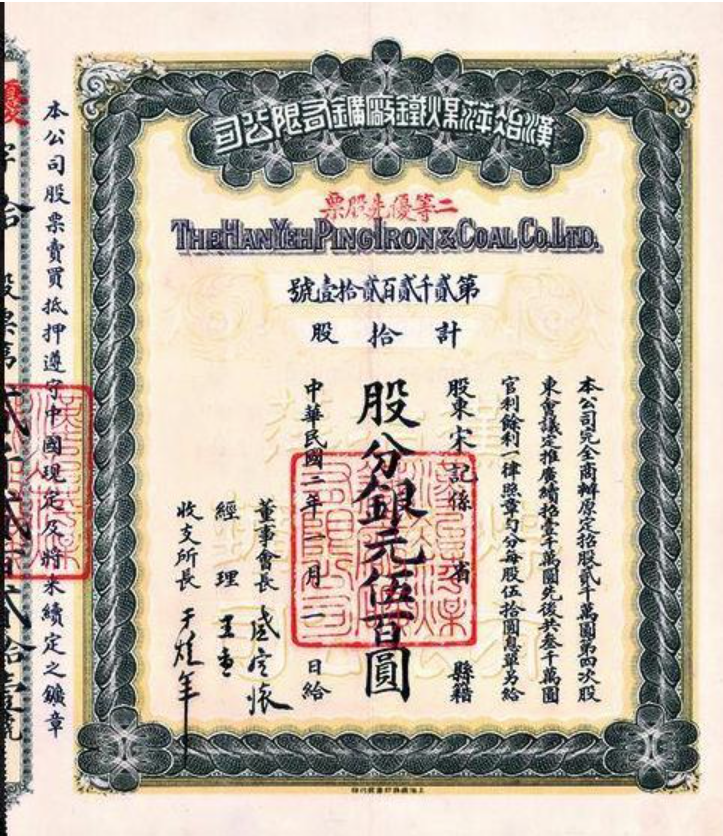 漢冶萍煤鐵廠鑛有限公司
二等優先股票
THE HAN YEH PING IRON & COAL CO. LTD.
第貳千貳百貳拾壹號
計拾股
本公司完全商辦原定招股貳千萬圓第四次股
東會議定推廣續招壹千萬圓先後共叁千萬圓
官利餘利一律照章勻分每股伍拾圓息單另給
股東宋記係 省 縣籍
股分銀元伍百圓
中華民國三年一月一日給
董事會長 盛宣懷
經理 王
收支所長 于焌年
本公司股票賣買抵押遵守中國現定及將來續定之鑛章
優字拾股票第貳千貳百貳拾壹號